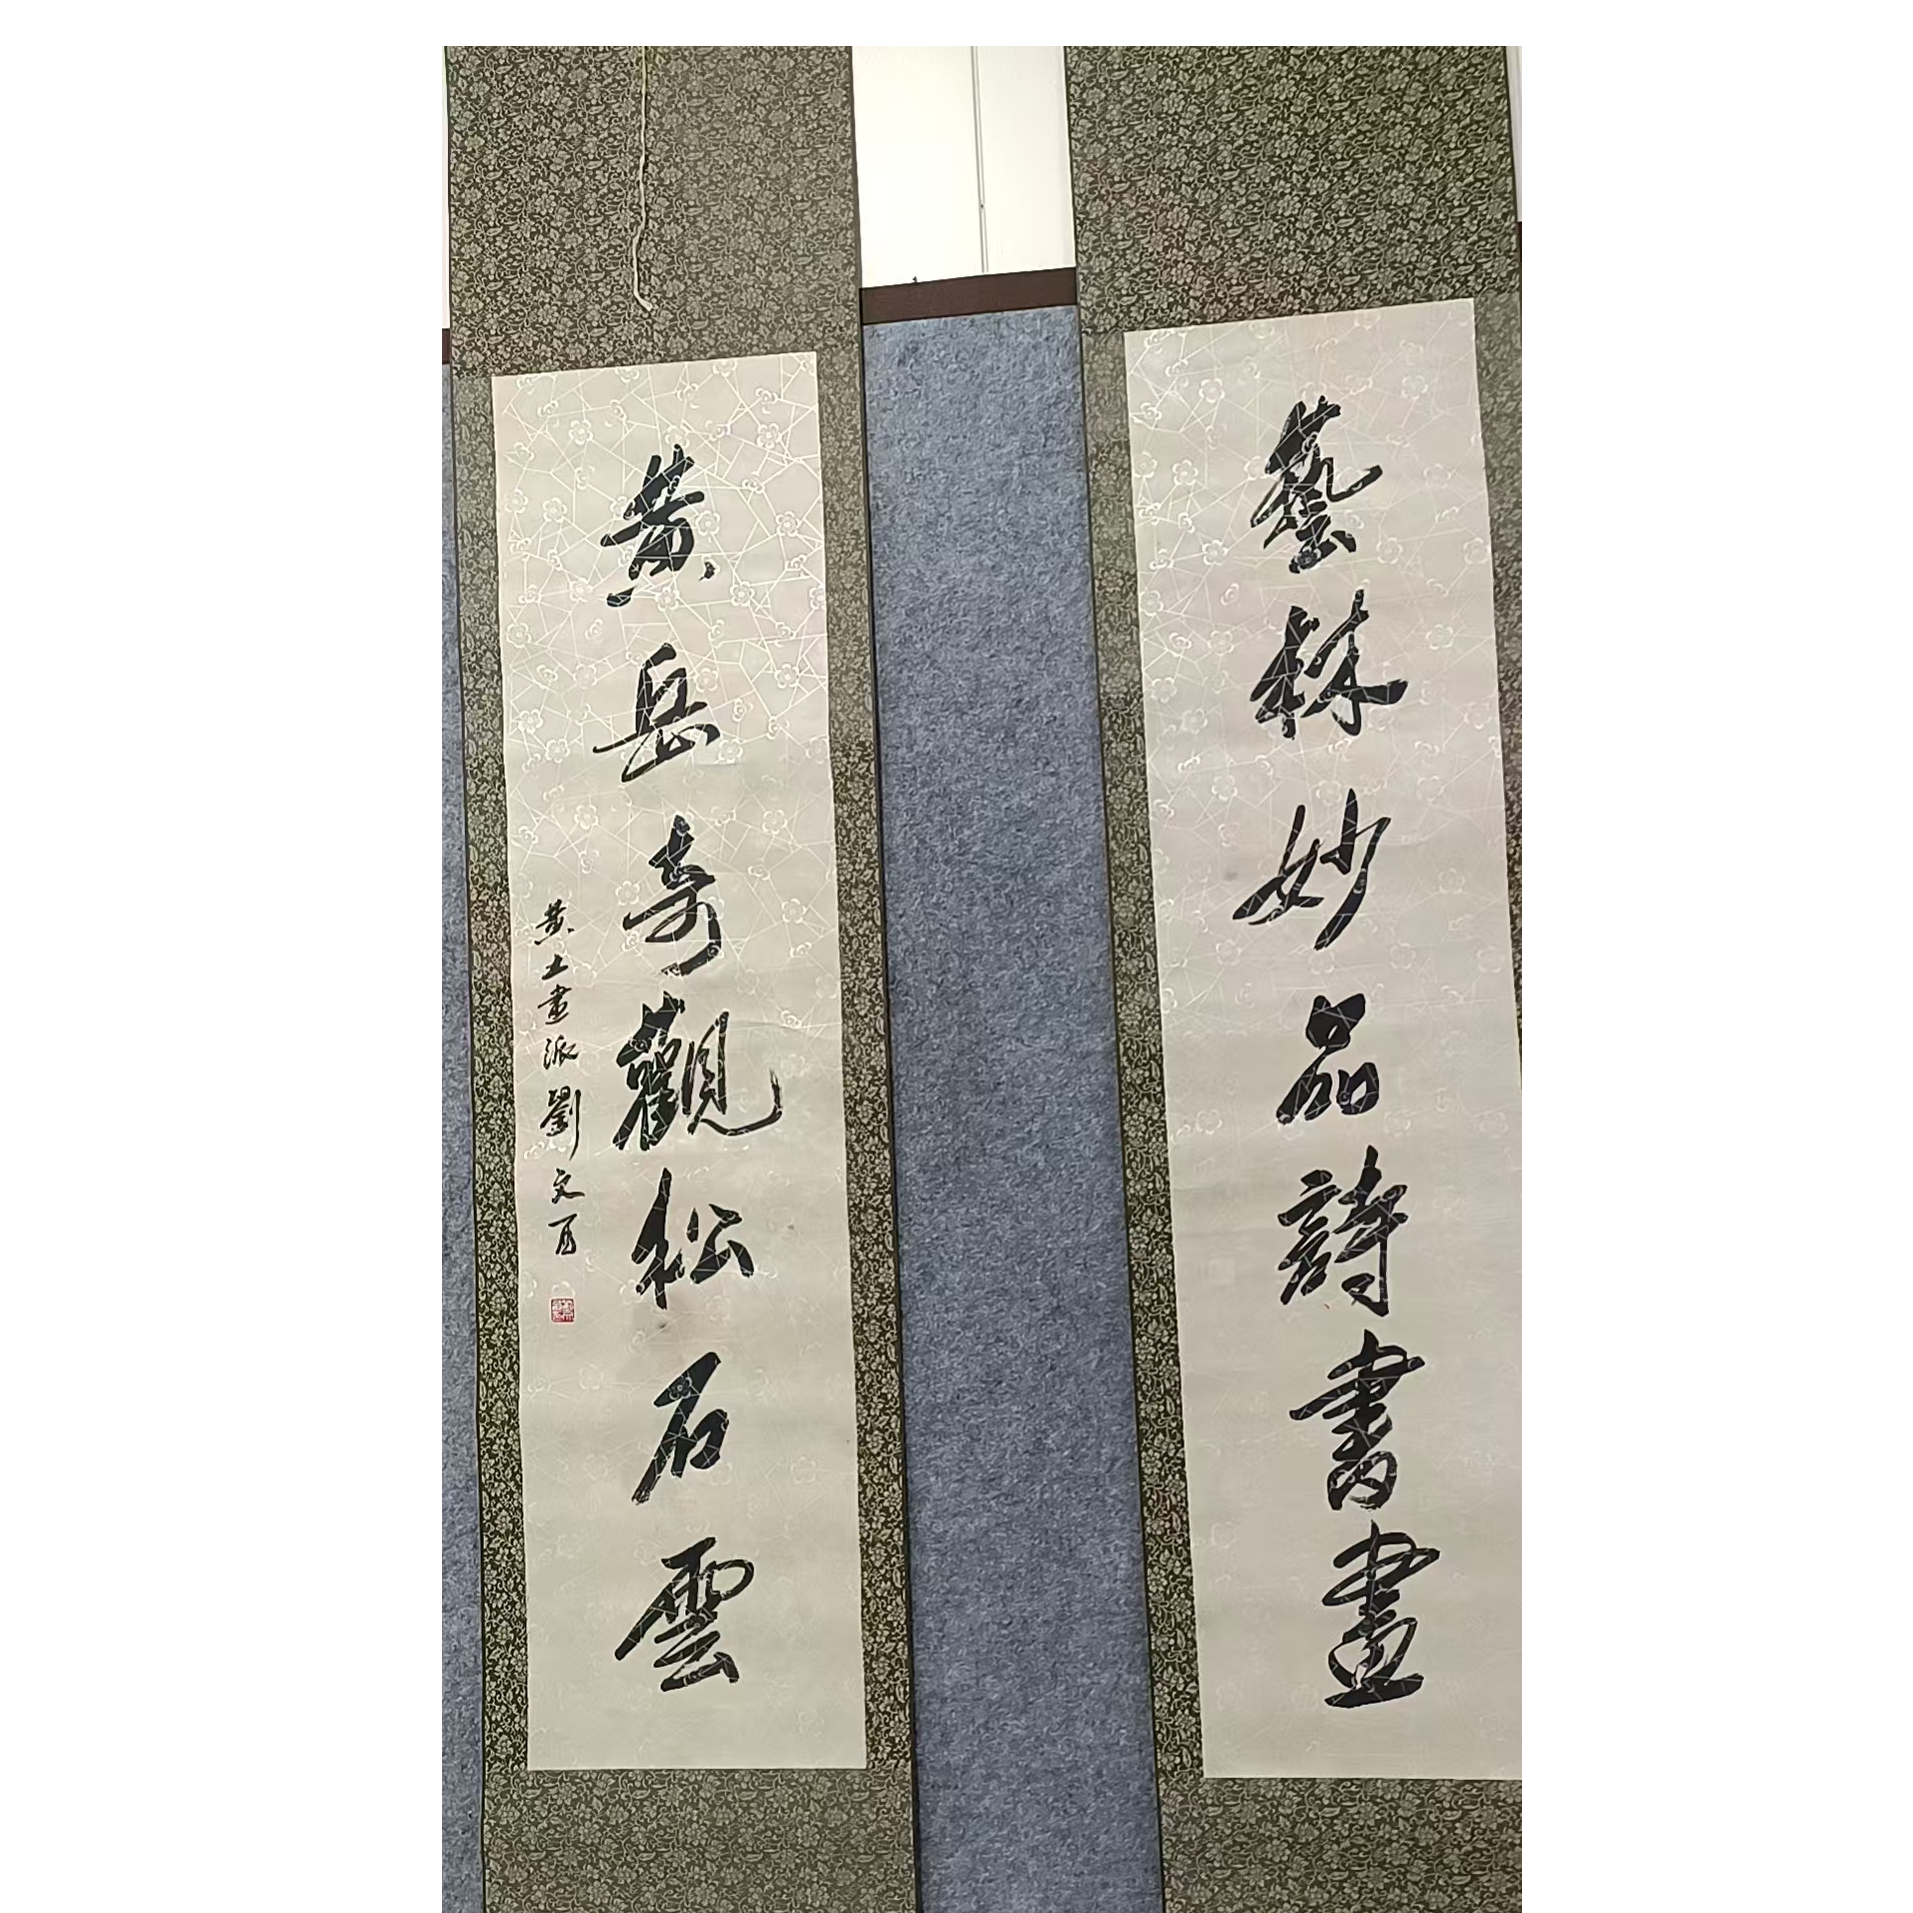 藝林妙品詩書畫
黃岳奇觀松石雲
黃土畫派劉文西